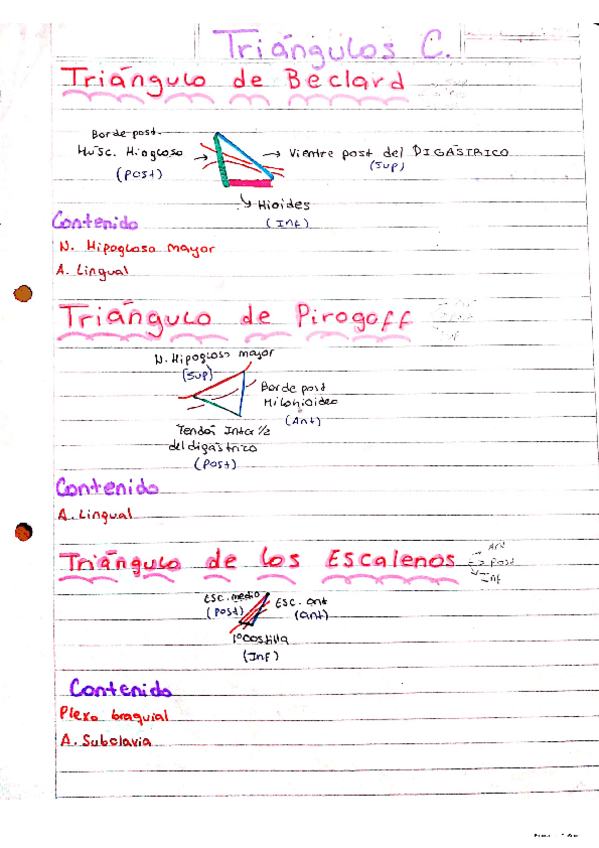 Triángulos C.
Triángulo de Beclard
Borde post.
Musc. Hiogloso
(Post)
Vientre post del DIGÁSTRICO
(Sup)
Hioides
(Inf)
Contenido
N. Hipogloso mayor
A. Lingual
Triángulo de Pirogoff
N. Hipogloso mayor
(Sup)
Borde post
Milohioideo
(Ant)
Tendón Inter ½
del digástrico
(Post)
Contenido
A. Lingual
Triángulo de los Escalenos
Ant
Post
Inf
Esc. medio
(Post)
Esc. ant
(ant)
1º costilla
(Inf)
Contenido
Plexo braquial
A. Subclavia